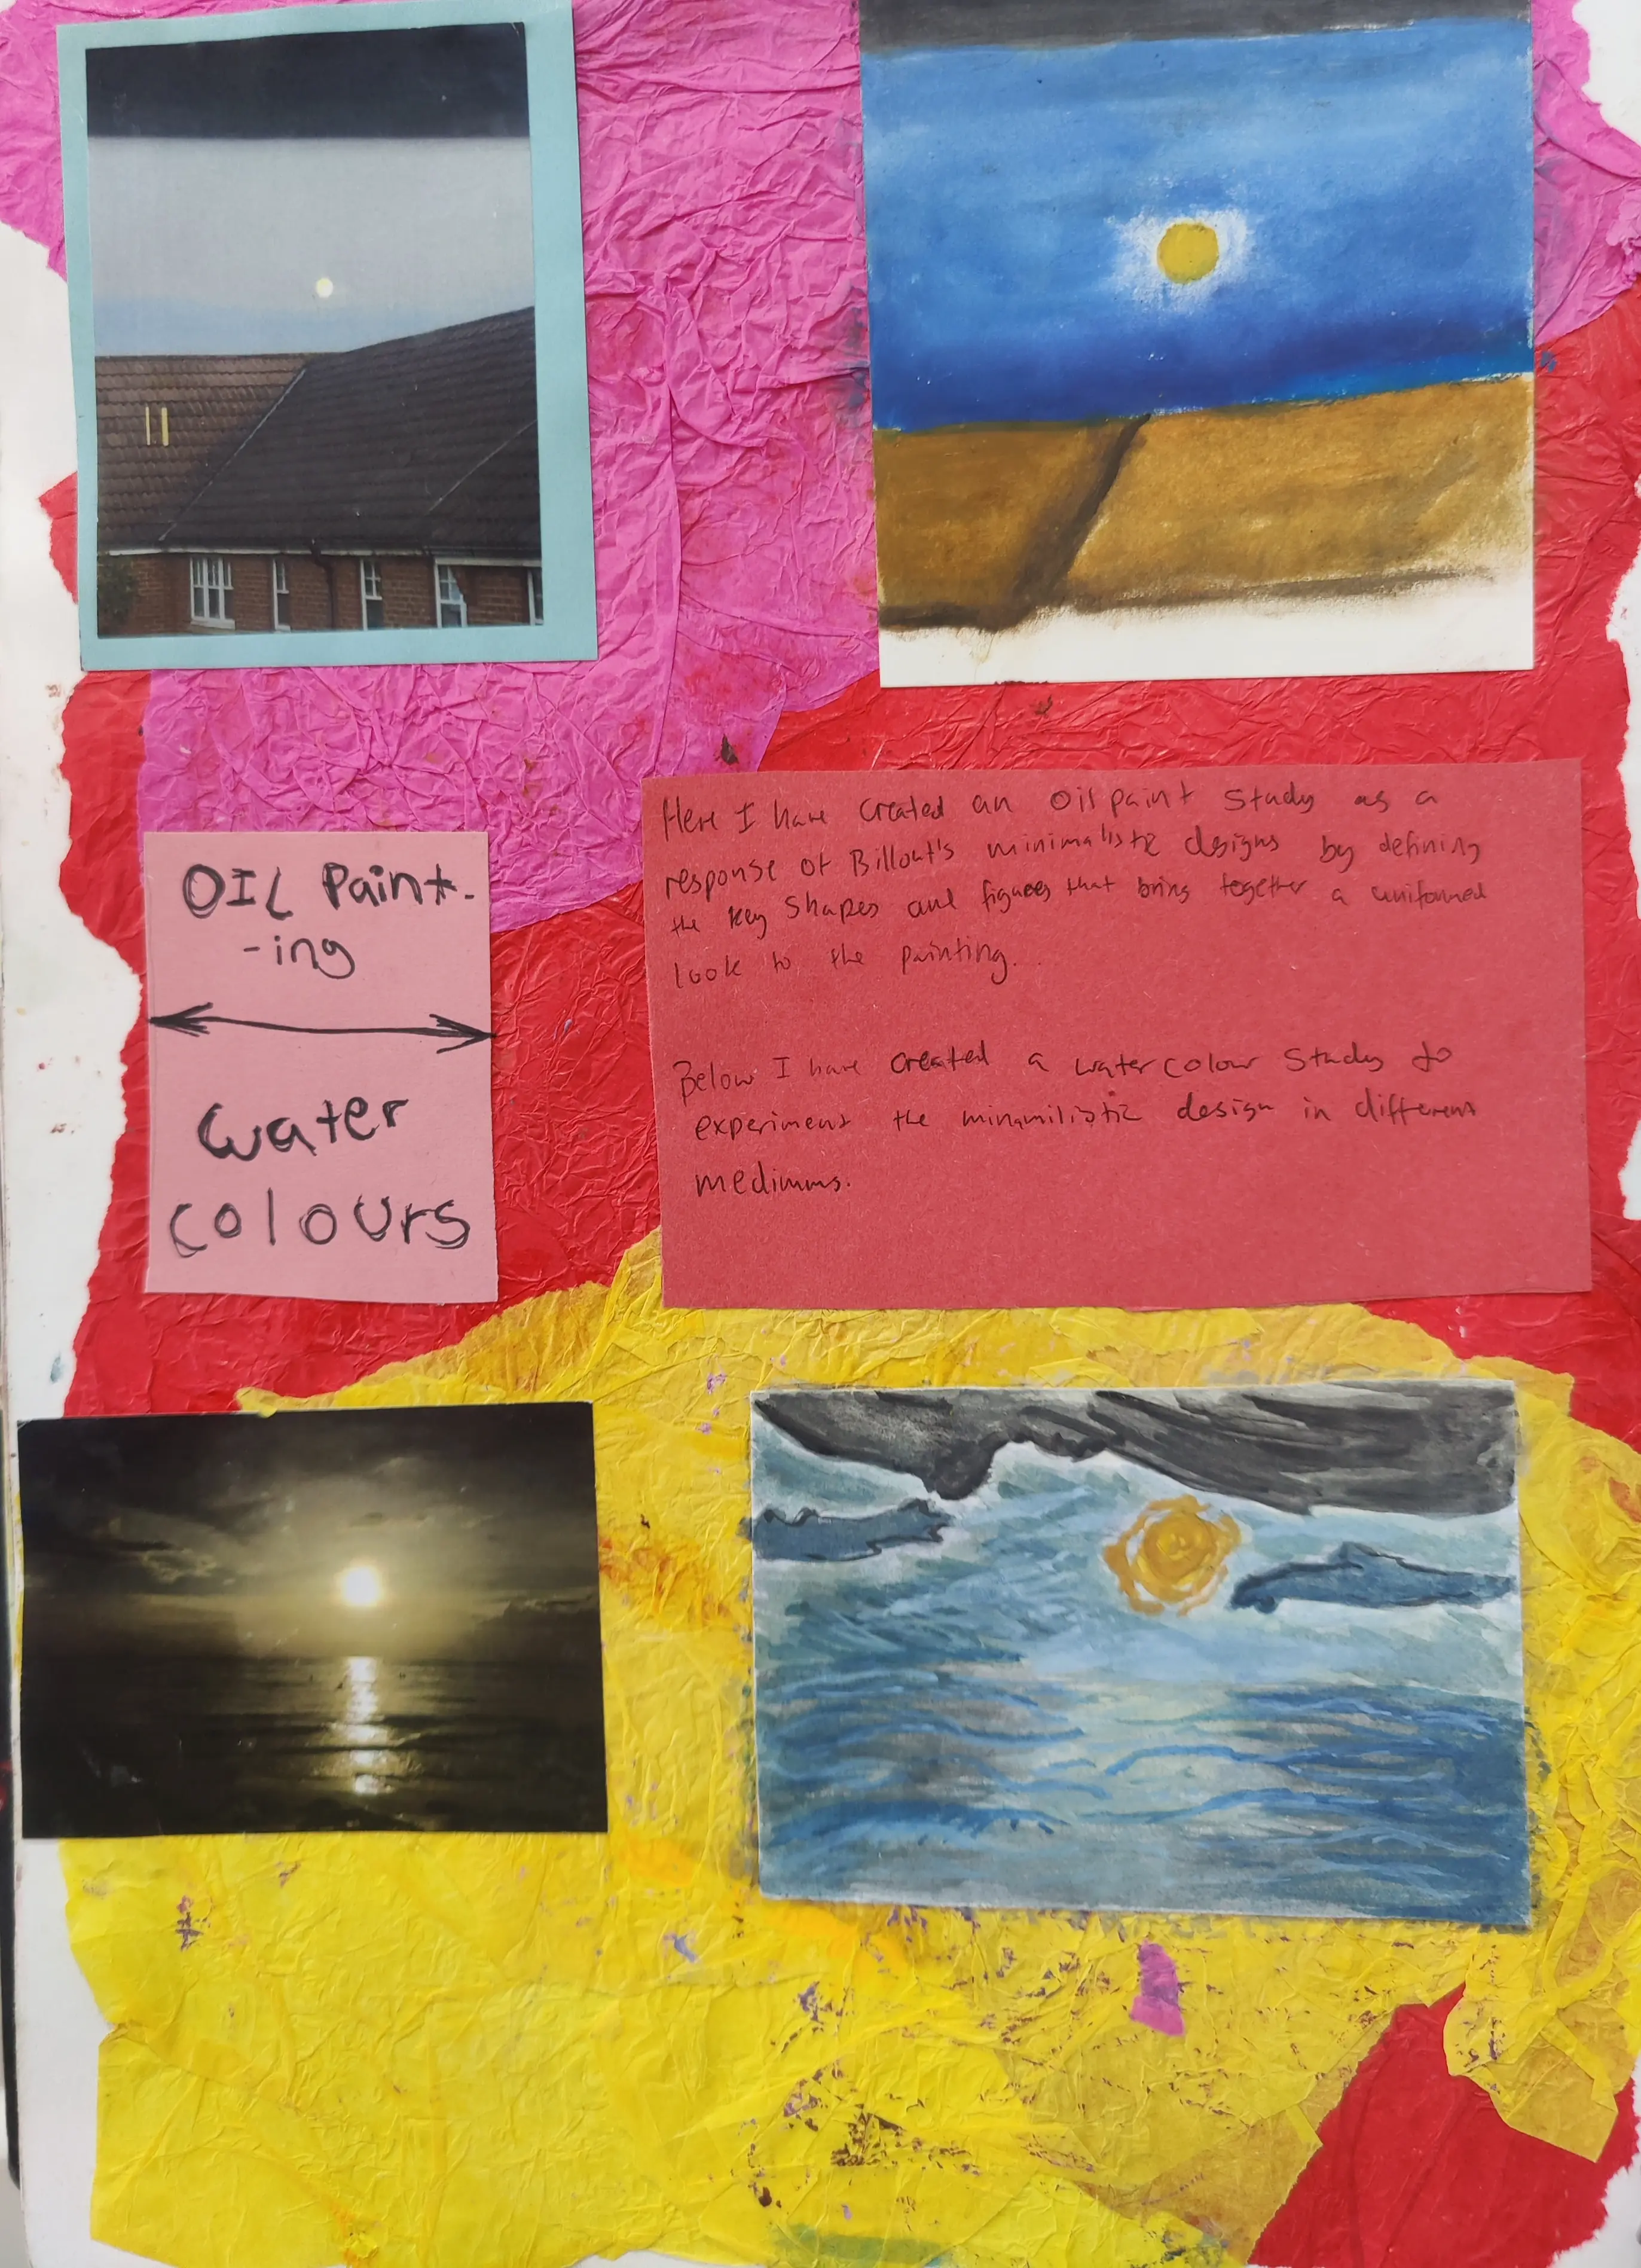 OIL Paint-
-ing
water
colours
Here I have created an Oil paint Study as a
response of Billout's minimalistic designs by defining
the key Shapes and figures that bring together a uniformed
look to the painting.
Below I have created a water colour Study to
experiment the minamilistic design in different
mediums.